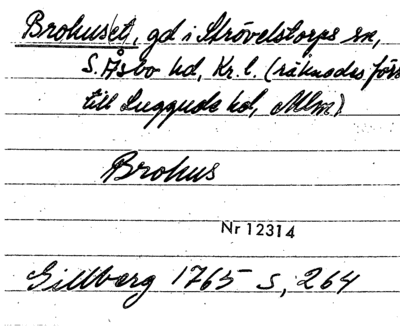 Brohus(et), gd i Strövelstorps sn,
S. Åsbo hd, Kr. l. (räknades förr
till Luggude hd, Mlm)
Brohus
Nr 12314
Gillberg 1765 s, 264